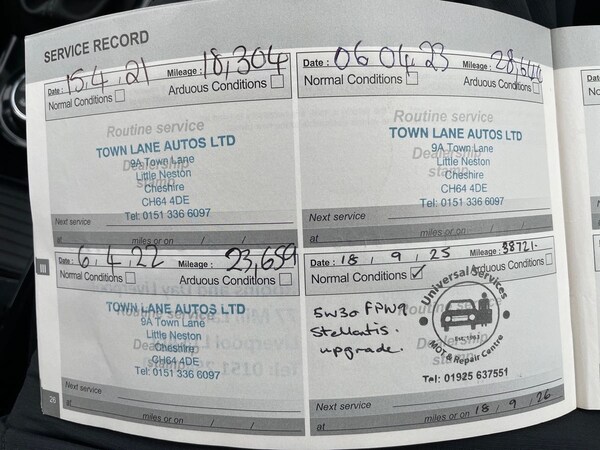 SERVICE RECORD
Date: 15.4.21 Mileage: 18,304
Normal Conditions Arduous Conditions
Routine service
TOWN LANE AUTOS LTD
9A Town Lane
Dealership
Little Neston
stamp
Cheshire
CH64 4DE
Tel: 0151 336 6097
Next service
at miles or on / /
Date: 06 04 23 Mileage:
Normal Conditions Arduous Conditions
Routine service
TOWN LANE AUTOS LTD
9A Town Lane
Dealership
Little Neston
stamp
Cheshire
CH64 4DE
Tel: 0151 336 6097
Next service
at miles or on / /
Date: 6.4.22 Mileage: 23,659
Normal Conditions Arduous Conditions
Routine service
TOWN LANE AUTOS LTD
9A Town Lane
Little Neston
Dealership
Cheshire
stamp
CH64 4DE
Tel: 0151 336 6097
Next service
at miles or on / /
Date: 18 / 9 / 25 Mileage: 38721.
Normal Conditions ✓ Arduous Conditions
Universal Services
5W30 FPW9
Routine service
Stellantis.
upgrade.
Dealership
stamp
MOT & Repair Centre
Tel: 01925 637551
Next service
at miles or on 18 / 9 / 26
26